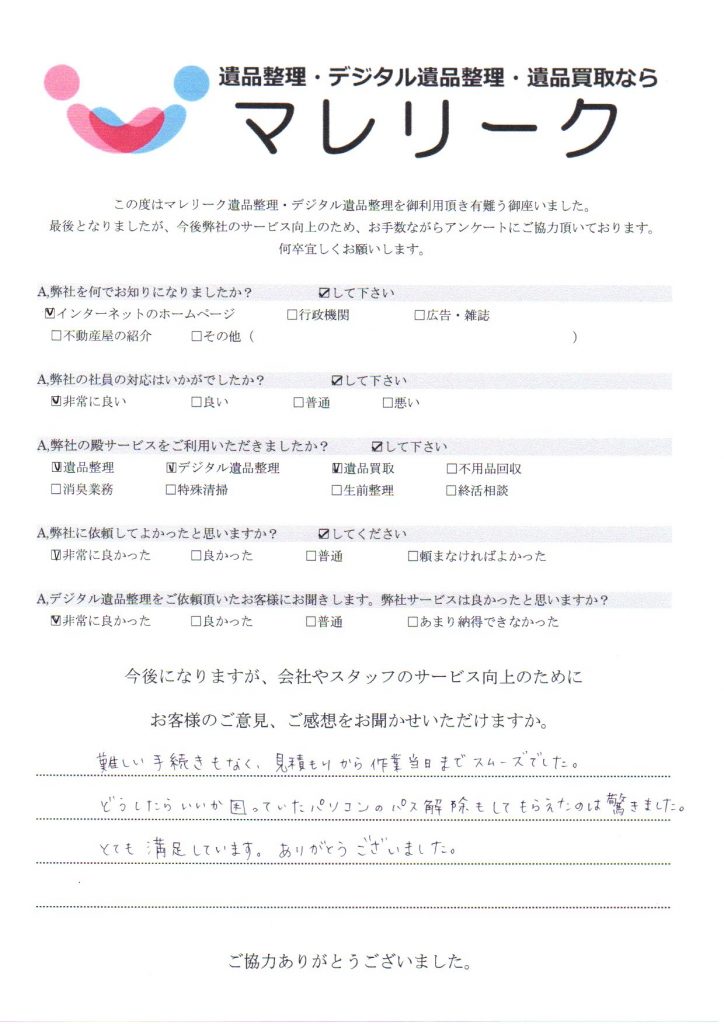 遺品整理・デジタル遺品整理・遺品買取なら
マレリーク
この度はマレリーク遺品整理・デジタル遺品整理を御利用頂き有難う御座いました。
最後となりましたが、今後弊社のサービス向上のため、お手数ながらアンケートにご協力頂いております。
何卒宜しくお願いします。
A,弊社を何でお知りになりましたか？ ☑して下さい
☑インターネットのホームページ □行政機関 □広告・雑誌
□不動産屋の紹介 □その他（ ）
A,弊社の社員の対応はいかがでしたか？ ☑して下さい
☑非常に良い □良い □普通 □悪い
A,弊社の殿サービスをご利用いただきましたか？ ☑して下さい
☑遺品整理 ☑デジタル遺品整理 ☑遺品買取 □不用品回収
□消臭業務 □特殊清掃 □生前整理 □終活相談
A,弊社に依頼してよかったと思いますか？ ☑してください
☑非常に良かった □良かった □普通 □頼まなければよかった
A,デジタル遺品整理をご依頼頂いたお客様にお聞きします。弊社サービスは良かったと思いますか？
☑非常に良かった □良かった □普通 □あまり納得できなかった
今後になりますが、会社やスタッフのサービス向上のために
お客様のご意見、ご感想をお聞かせいただけますか。
難しい手続きもなく、見積もりから作業当日までスムーズでした。
どうしたらいいか困っていたパソコンのパス解除もしてもらえたのは驚きました。
とても満足しています。ありがとうございました。
ご協力ありがとうございました。